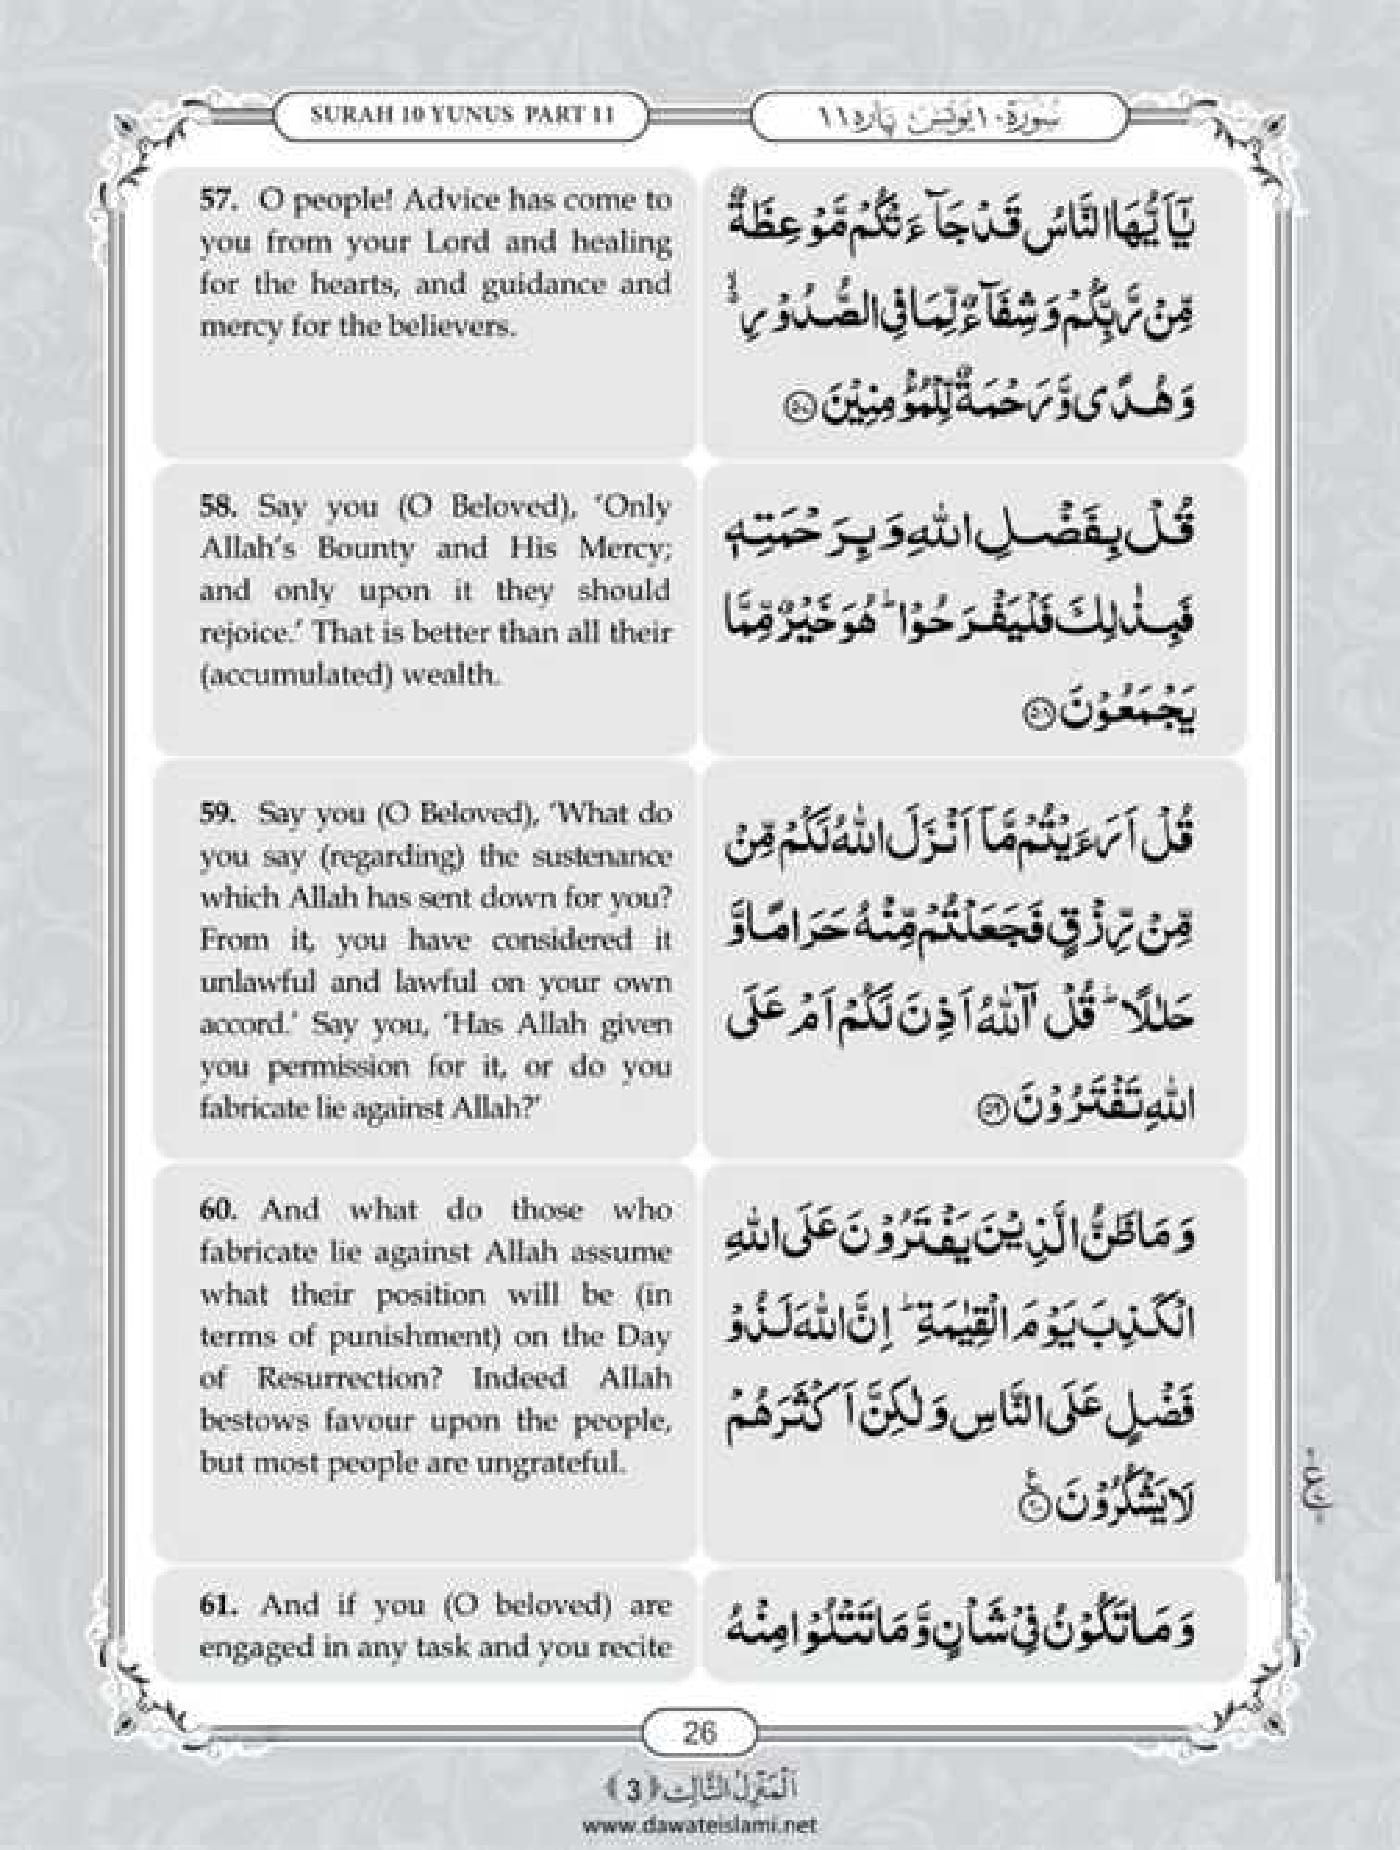 SURAH 10 YUNUS PART 11
سُوْرَۃ ١٠ یُوْنُس پارہ ١١
57. O people! Advice has come to
you from your Lord and healing
for the hearts, and guidance and
mercy for the believers.
یٰۤاَیُّهَا النَّاسُ قَدْ جَآءَتْكُمْ مَّوْعِظَةٌ
مِّنْ رَّبِّكُمْ وَ شِفَآءٌ لِّمَا فِی الصُّدُوْرِ ۙ۬
وَ هُدًى وَّ رَحْمَةٌ لِّلْمُؤْمِنِیْنَ ﴿۵۷﴾
58. Say you (O Beloved), ‘Only
Allah’s Bounty and His Mercy;
and only upon it they should
rejoice.’ That is better than all their
(accumulated) wealth.
قُلْ بِفَضْلِ اللّٰهِ وَ بِرَحْمَتِهٖ
فَبِذٰلِكَ فَلْیَفْرَحُوْا ؕ هُوَ خَیْرٌ مِّمَّا
یَجْمَعُوْنَ ﴿۵۸﴾
59. Say you (O Beloved), ‘What do
you say (regarding) the sustenance
which Allah has sent down for you?
From it, you have considered it
unlawful and lawful on your own
accord.’ Say you, ‘Has Allah given
you permission for it, or do you
fabricate lie against Allah?’
قُلْ اَرَءَیْتُمْ مَّاۤ اَنْزَلَ اللّٰهُ لَكُمْ مِّنْ
مِّنْ رِّزْقٍ فَجَعَلْتُمْ مِّنْهُ حَرَامًا وَّ
حَلٰلًا ؕ قُلْ آٰللّٰهُ اَذِنَ لَكُمْ اَمْ عَلَى
اللّٰهِ تَفْتَرُوْنَ ﴿۵۹﴾
60. And what do those who
fabricate lie against Allah assume
what their position will be (in
terms of punishment) on the Day
of Resurrection? Indeed Allah
bestows favour upon the people,
but most people are ungrateful.
وَ مَا ظَنُّ الَّذِیْنَ یَفْتَرُوْنَ عَلَى اللّٰهِ
الْكَذِبَ یَوْمَ الْقِیٰمَةِ ؕ اِنَّ اللّٰهَ لَذُوْ
فَضْلٍ عَلَى النَّاسِ وَ لٰكِنَّ اَكْثَرَهُمْ
لَا یَشْكُرُوْنَ ﴿۶۰﴾
61. And if you (O beloved) are
engaged in any task and you recite
وَ مَا تَكُوْنُ فِیْ شَاْنٍ وَّ مَا تَتْلُوْا مِنْهُ
26
اَلْمَنْزِلُ الثَّالِث ﴿3﴾
www.dawateislami.net